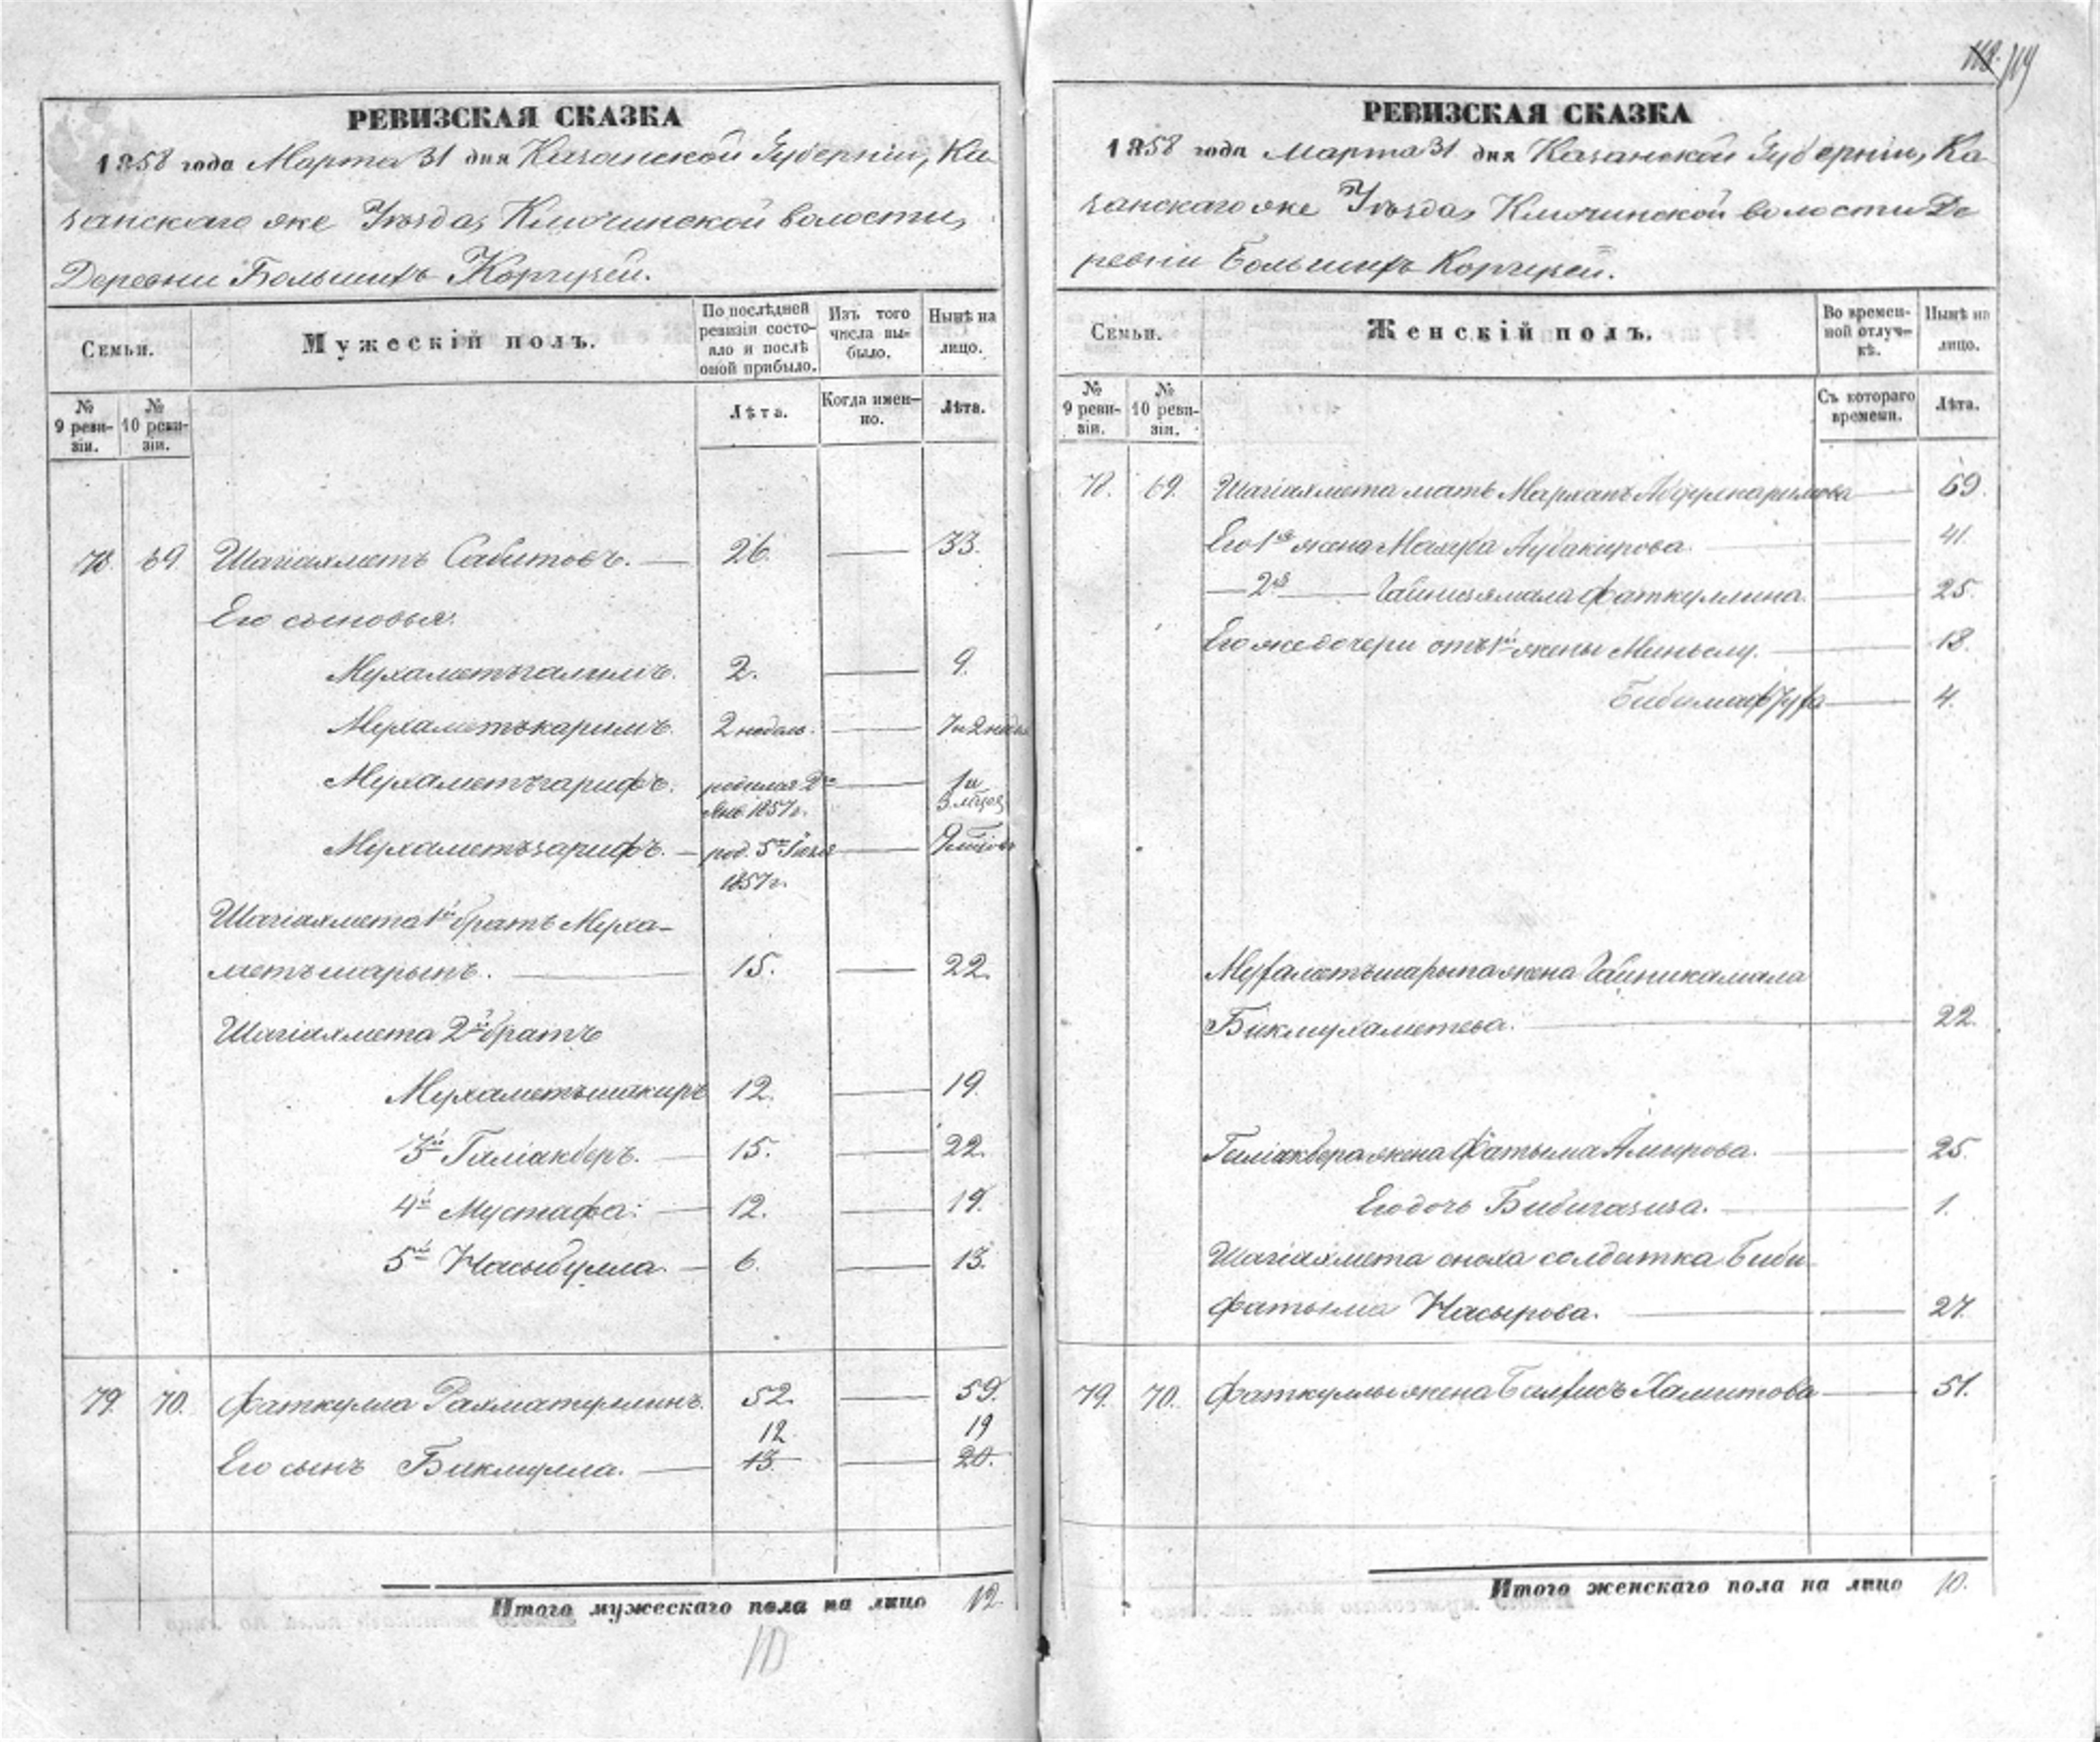 118. 119
РЕВИЗСКАЯ СКАЗКА
1858 года Марта 31 дня Казанской Губерніи, Ка-
занскаго же Уѣзда, Ключинской волости,
Деревни Большихъ Коргузей.
Семьи.
Мужескій полъ.
По послѣдней ревизіи состояло и послѣ оной прибыло.
Изъ того числа выбыло.
Нынѣ на лицо.
№ 9 ревизіи.
№ 10 ревизіи.
Лѣта.
Когда именно.
Лѣта.
78. 69 Шагіахметъ Сабитовъ. — 26. — 33.
Его сыновья:
Мухаметъгалимъ. 2. — 9.
Мухаметькаримъ. 2 недель. — 7 и 2 недель
Мухаметъгарифъ. родился 2го Янв. 1857 г. — 1 и 3 мѣсяц
Мухаметъзарифъ. — род. 5го 1857 г. — 9 мѣсяов
Шагіахмета 1й братъ Муха-
метъшарыпъ. — 15. — 22.
Шагіахмета 2й братъ
Мухаметъшакиръ 12. — 19.
3й Галіакберъ. — 15. — 22.
4й Мустафа: — 12. — 19.
5й Насыбулла. — 6. — 13.
79. 70. Фаткулла Рахматуллинъ. 52. — 59.
12. 19
Его сынъ Бикмулла. — 13. — 20.
Итого мужескаго пола на лицо 12.
10
РЕВИЗСКАЯ СКАЗКА
1858 года Марта 31 дня Казанской Губерніи, Ка-
занскаго же Уѣзда, Ключинской волости Де-
ревни Большихъ Коргузей.
Семьи.
Женскій полъ.
Во временной отлучкѣ.
Нынѣ на лицо.
№ 9 ревизіи.
№ 10 ревизіи.
Съ котораго времени.
Лѣта.
78. 69. Шагіахмета мать Абдулкаримова — 59.
Его 1я жена Аубакирова. — 41.
— 2я — Гайнизямала Фаткуллина. — 25.
Его же дочери отъ 1й жены Миньслу. — 18.
— 4.
Мухаметъшарыпа жена Гайникамала
Бикмухаметева. — 22.
Галіакбера жена Фатыма Амирова. — 25.
Его дочь Бибигазиза. — 1.
Шагіахмета сноха солдатка Биби-
фатыма Насырова. — 27.
79. 70. Фаткуллы жена Хамитова — 51.
Итого женскаго пола на лицо 10.